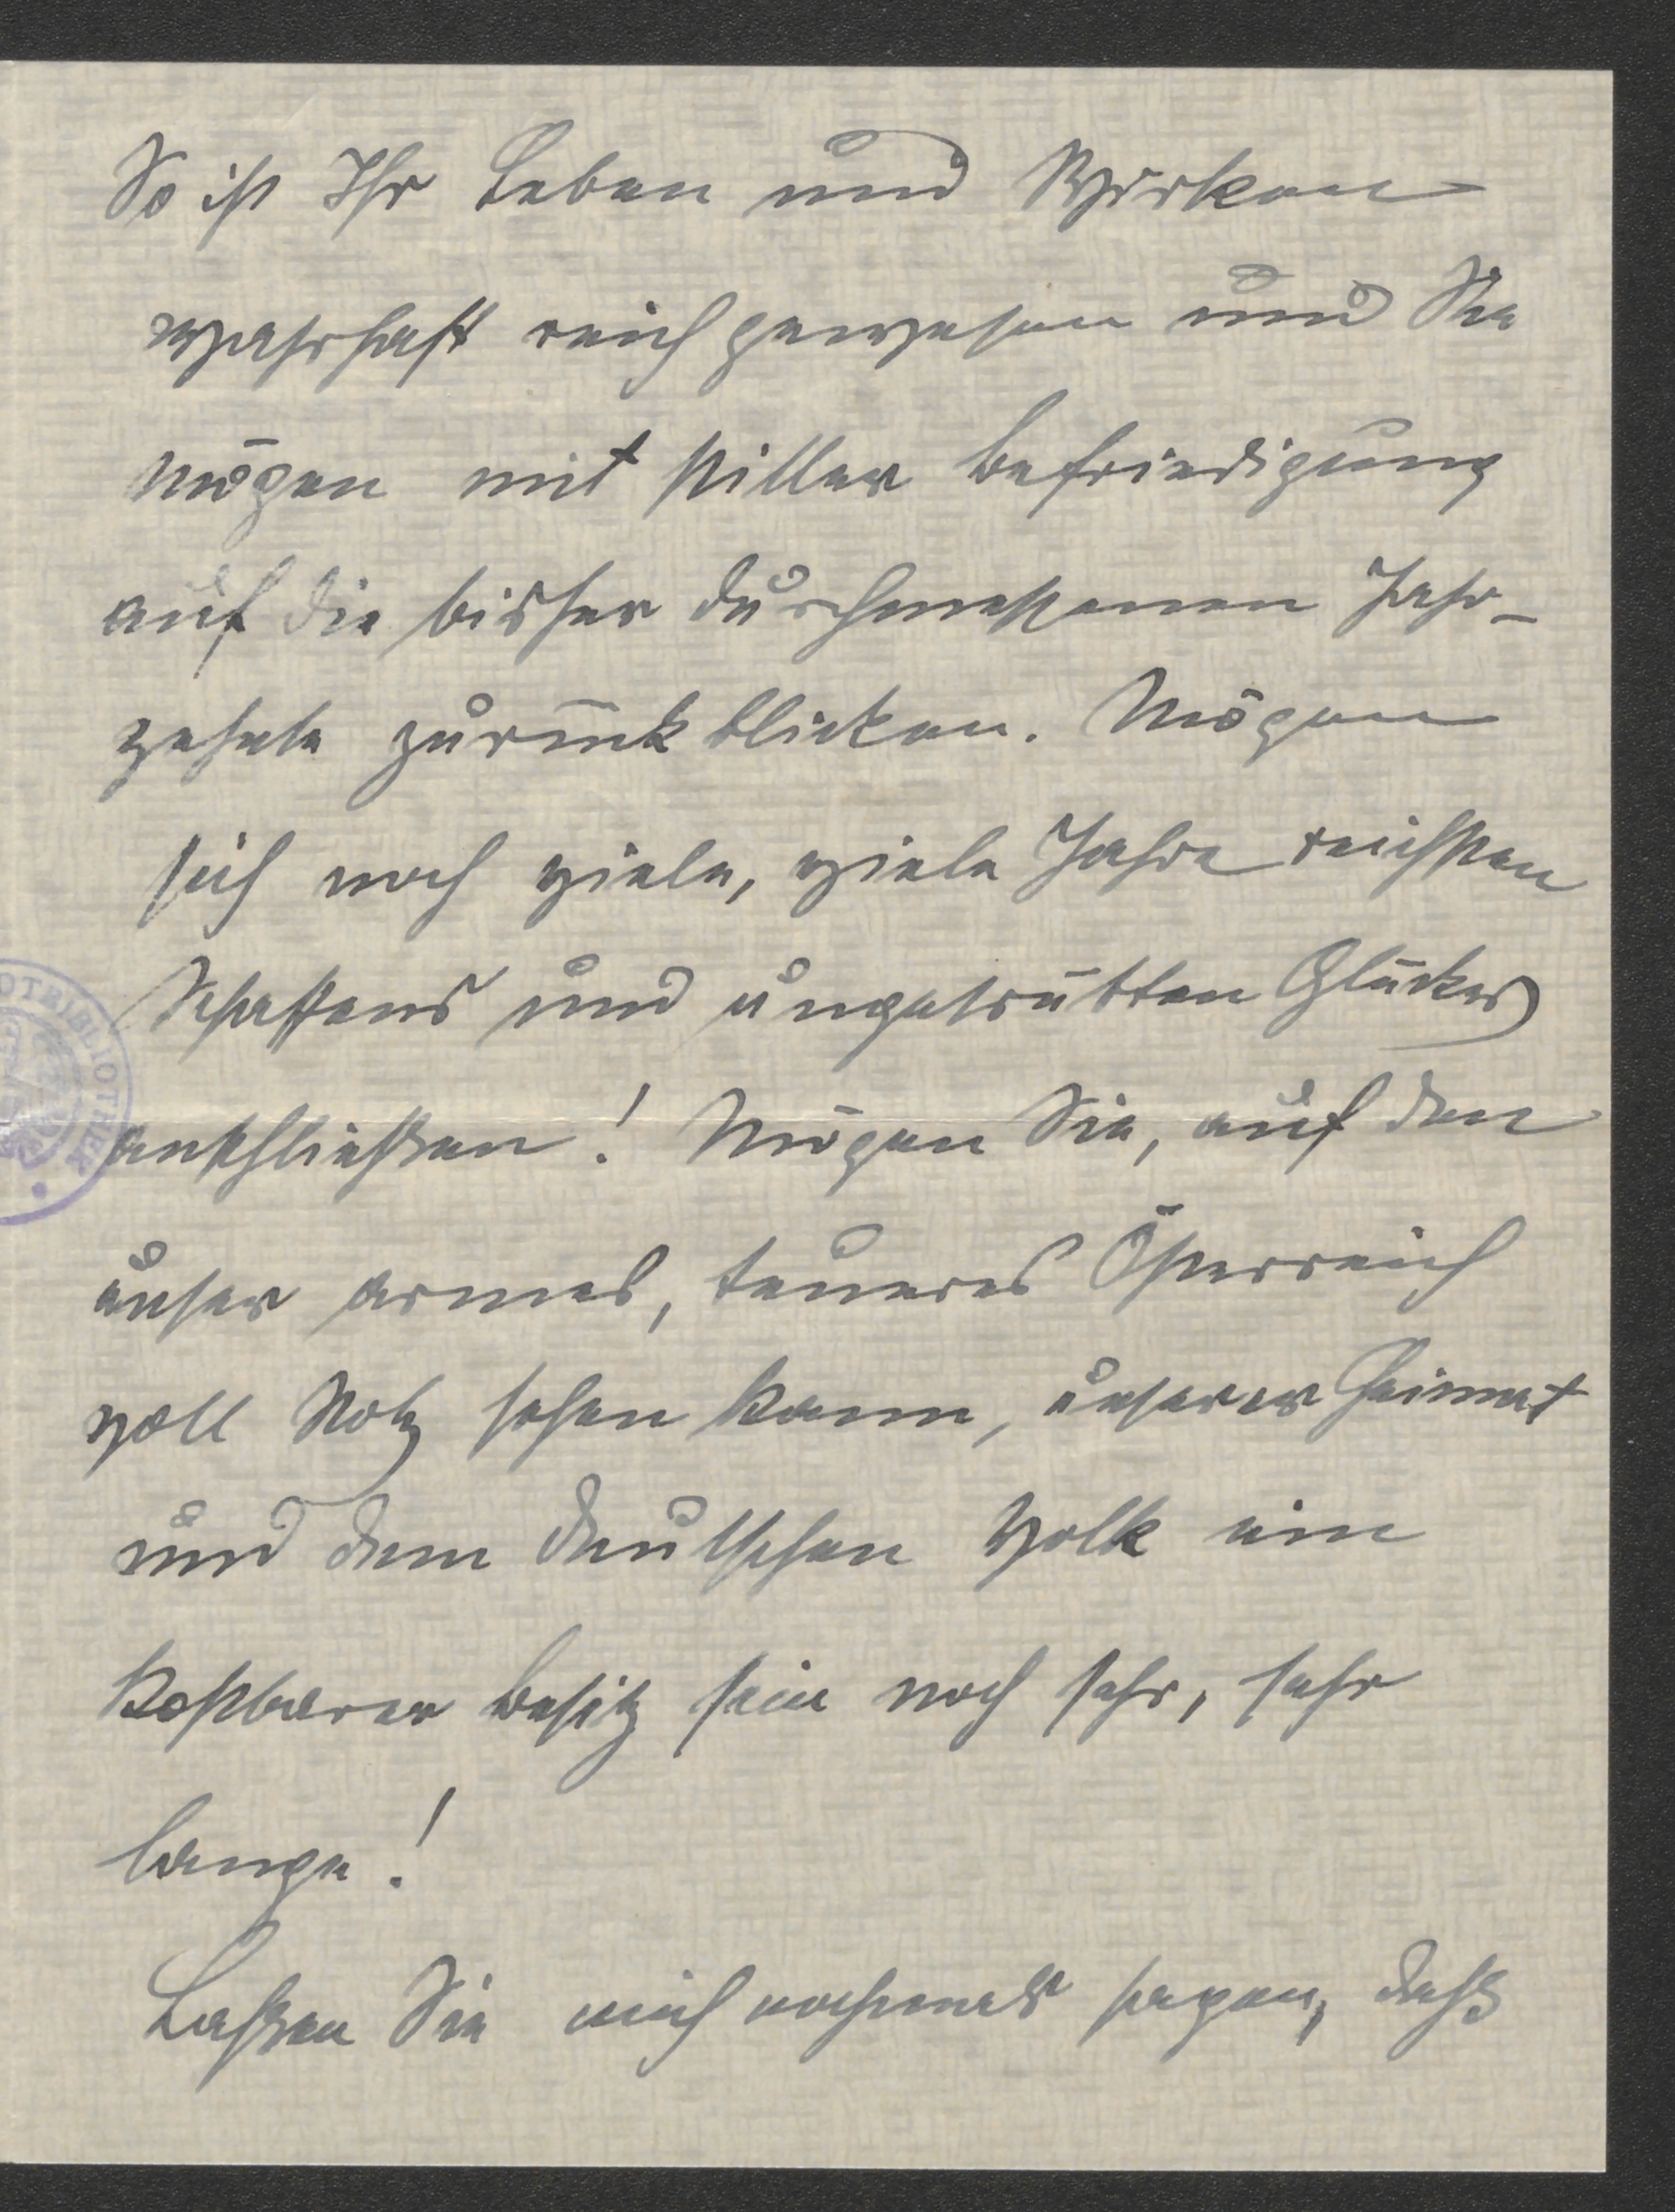 So ist Ihr Leben und Wirken
wahrhaft reich gewesen und Sie
mögen mit stiller Befriedigung
auf die bisher durchmessenen Jahr-
zehnte zurückblicken. Mögen
sich noch viele, viele Jahre reichsten
Schaffens und ungetrübten Glückes
anschließen! Mögen Sie, auf den
unser armes, teueres Österreich
voll Stolz sehen kann, unserer Heimat
und dem deutschen Volk ein
kostbarer Besitz sein noch sehr, sehr
lange!
Lassen Sie mich nochmals sagen, daß